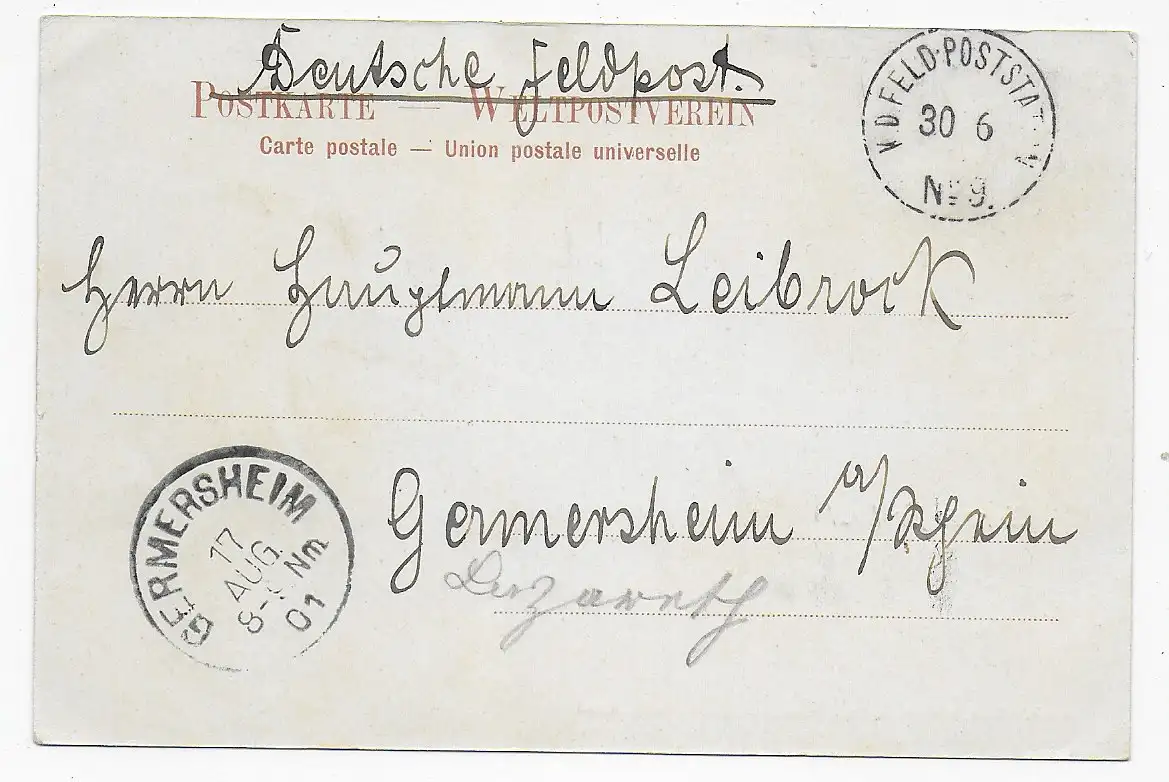 Deutsche Feldpost.
POSTKARTE — WELTPOSTVEREIN
Carte postale — Union postale universelle
K.D. FELD-POSTSTATION
30 6
No 9.
Herrn Hauptmann Leibrock
Germersheim a/Rhein
Lazareth
GERMERSHEIM
17
AUG
8- Nm
01